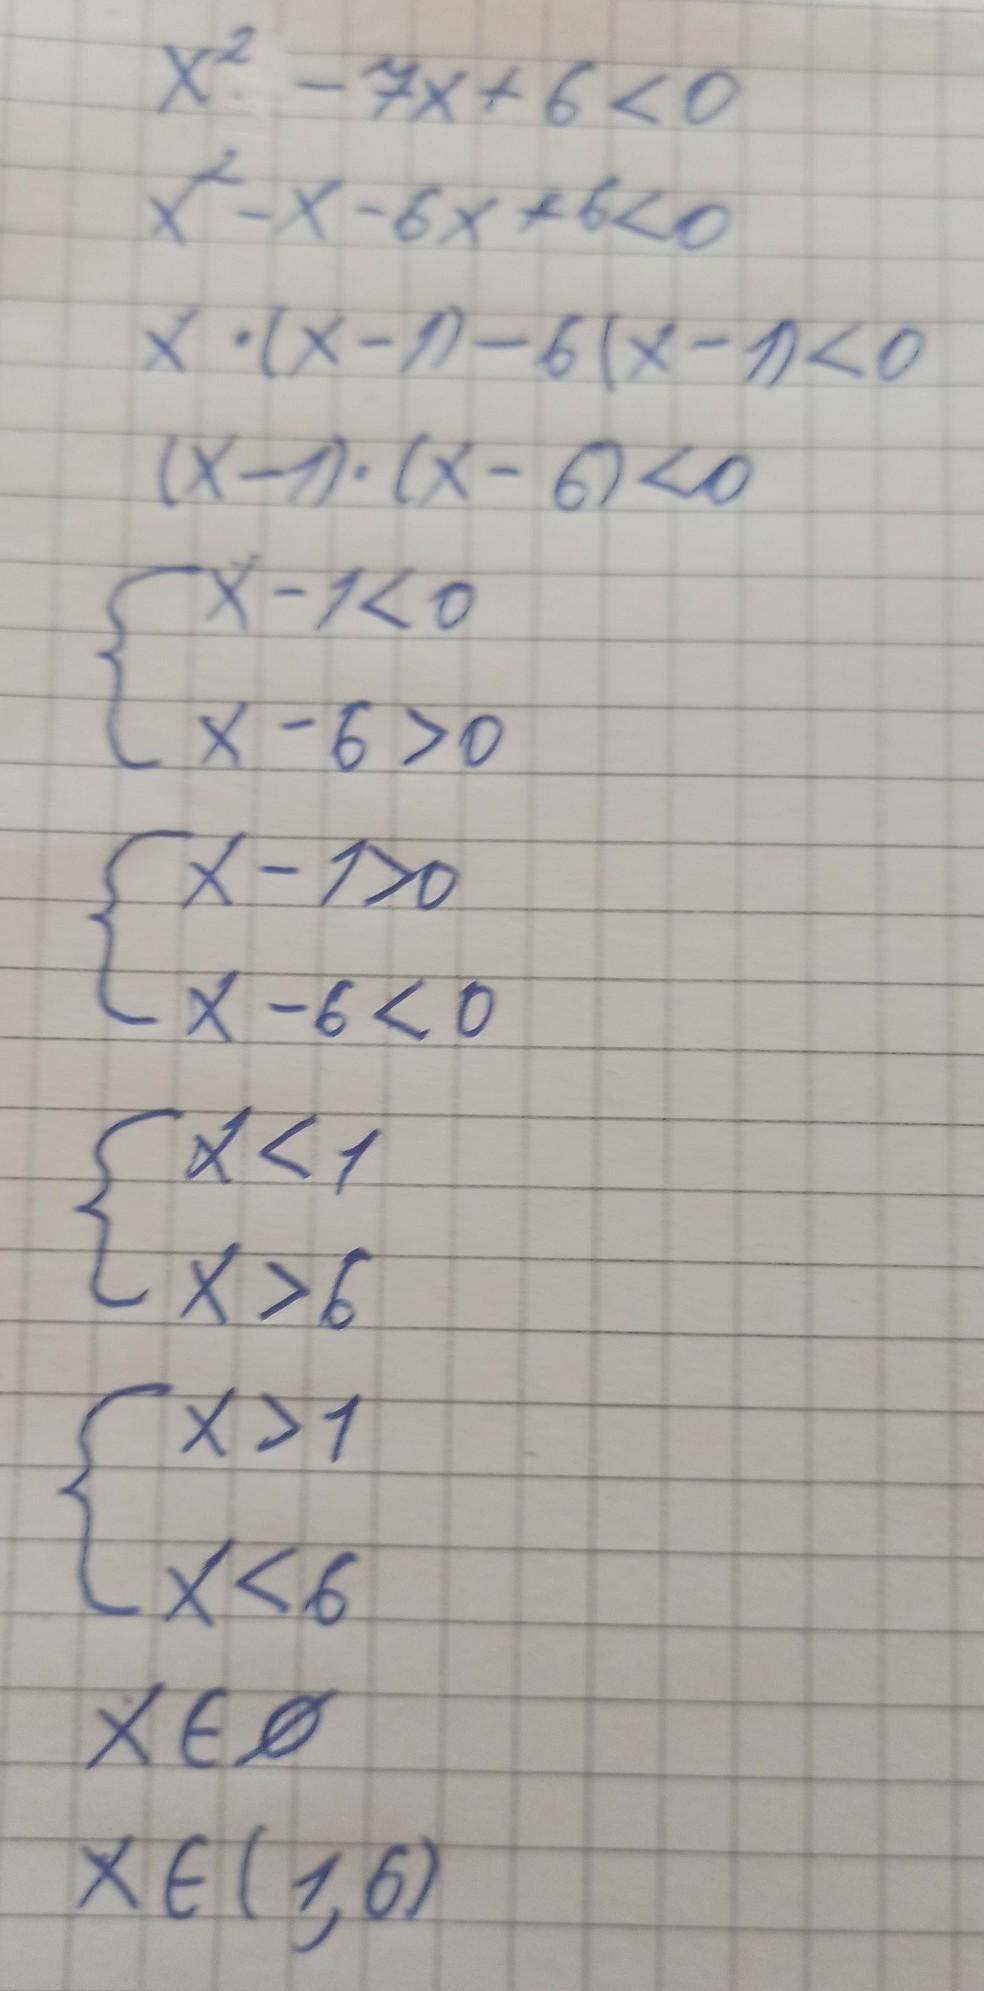 x² - 7x + 6 < 0
x² - x - 6x + 6 < 0
x · (x - 1) - 6(x - 1) < 0
(x - 1) · (x - 6) < 0
{ x - 1 < 0
x - 6 > 0
{ x - 1 > 0
x - 6 < 0
{ x < 1
x > 6
{ x > 1
x < 6
x ∈ ∅
x ∈ (1, 6)